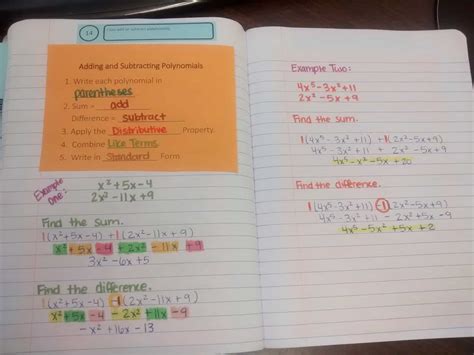 14
Adding and Subtracting Polynomials
1. Write each polynomial in
parentheses
2. Sum = add
Difference = subtract
3. Apply the Distributive Property.
4. Combine Like Terms
5. Write in Standard Form
Example One:
x² + 5x - 4
2x² - 11x + 9
Find the sum.
1(x² + 5x - 4) + 1(2x² - 11x + 9)
x² + 5x - 4 + 2x² - 11x + 9
3x² - 6x + 5
Find the difference.
1(x² + 5x - 4) -1(2x² - 11x + 9)
x² + 5x - 4 - 2x² + 11x - 9
-x² + 16x - 13
Example Two:
4x⁵ - 3x² + 11
2x² - 5x + 9
Find the sum.
1(4x⁵ - 3x² + 11) + 1(2x² - 5x + 9)
4x⁵ - 3x² + 11 + 2x² - 5x + 9
4x⁵ - x² - 5x + 20
Find the difference.
1(4x⁵ - 3x² + 11) -1(2x² - 5x + 9)
4x⁵ - 3x² + 11 - 2x² + 5x - 9
4x⁵ - 5x² + 5x + 2